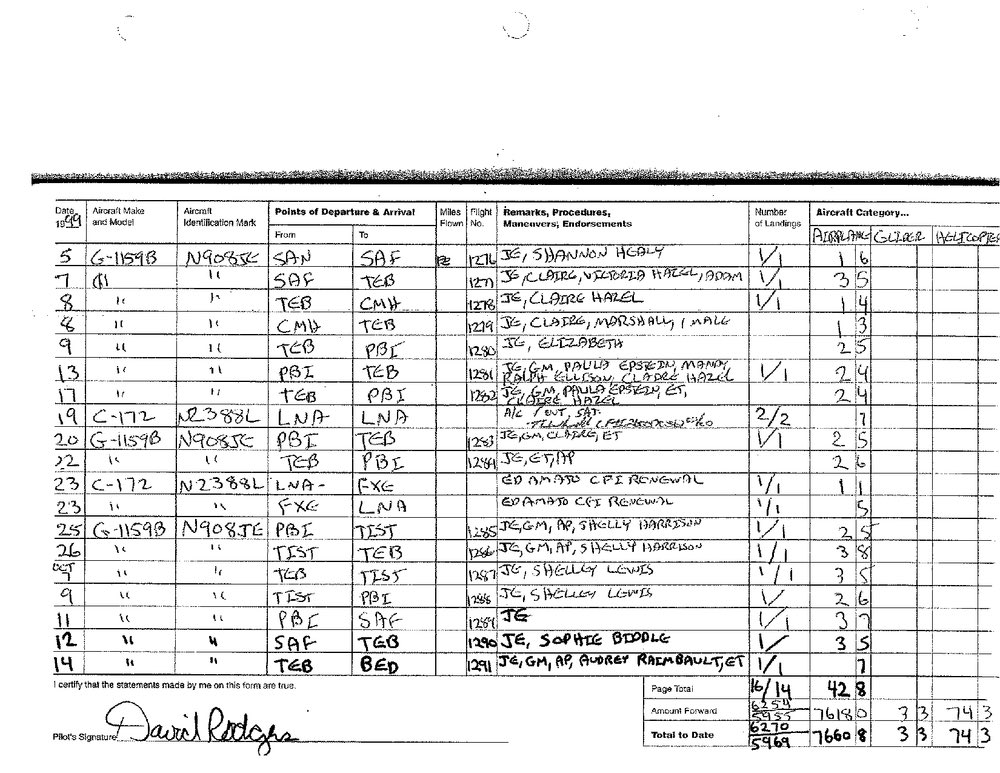 Date 1999 Aircraft Make and Model Aircraft Identification Mark Points of Departure & Arrival Miles Flown Flight No. Remarks, Procedures, Maneuvers, Endorsements Number of Landings Aircraft Category...
From To AIRPLANE GLIDER HELICOPTER
5 G-1159B N908JE SAN SAF 1276 JE, SHANNON HEALY 1/1 1 6
7 " SAF TEB 1277 JE, CLAIRE, VICTORIA HAZEL, ADAM 1/1 3 5
8 " " TEB CMH 1278 JE, CLAIRE HAZEL 1/1 1 4
8 " " CMH TEB 1279 JE, CLAIRE, MARSHALL, 1 MALE 1 3
9 " " TEB PBI 1280 JE, ELIZABETH 2 5
13 " " PBI TEB 1281 JE, GM, PAULA EPSTEIN, MANDY, RALPH ELLISON, CLAIRE HAZEL 1/1 2 4
17 " " TEB PBI 1282 JE, GM, PAULA EPSTEIN, ET, CLAIRE HAZEL 2 4
19 C-172 N2388L LNA LNA A/C SAT. 2/2 7
20 G-1159B N908JE PBI TEB 1283 JE, GM, CLAIRE, ET 1/1 2 5
22 " " TEB PBI 1284 JE, ET, AP 2 6
23 C-172 N2388L LNA- FXE ED AMATO CFI RENEWAL 1/1 1 1
23 " " FXE LNA ED AMATO CFI RENEWAL 1/1 5
25 G-1159B N908JE PBI TIST 1285 JE, GM, AP, SHELLY HARRISON 1/1 2 5
26 " " TIST TEB 1286 JE, GM, AP, SHELLY HARRISON 1/1 3 8
OCT 7 " " TEB TIST 1287 JE, SHELLEY LEWIS 1/1 3 5
9 " " TIST PBI 1288 JE, SHELLEY LEWIS 1/ 2 6
11 " " PBI SAF 1289 JE 1/1 3 7
12 " " SAF TEB 1290 JE, SOPHIE BIDDLE 1/ 3 5
14 " " TEB BED 1291 JE, GM, AP, AUDREY RAIMBAULT, ET 1/1 7
I certify that the statements made by me on this form are true. Page Total 16/14 42 8
Amount Forward 6254 5955 7618 0 3 3 74 3
Pilot's Signature David Rodgers Total to Date 6270 5969 7660 8 3 3 74 3